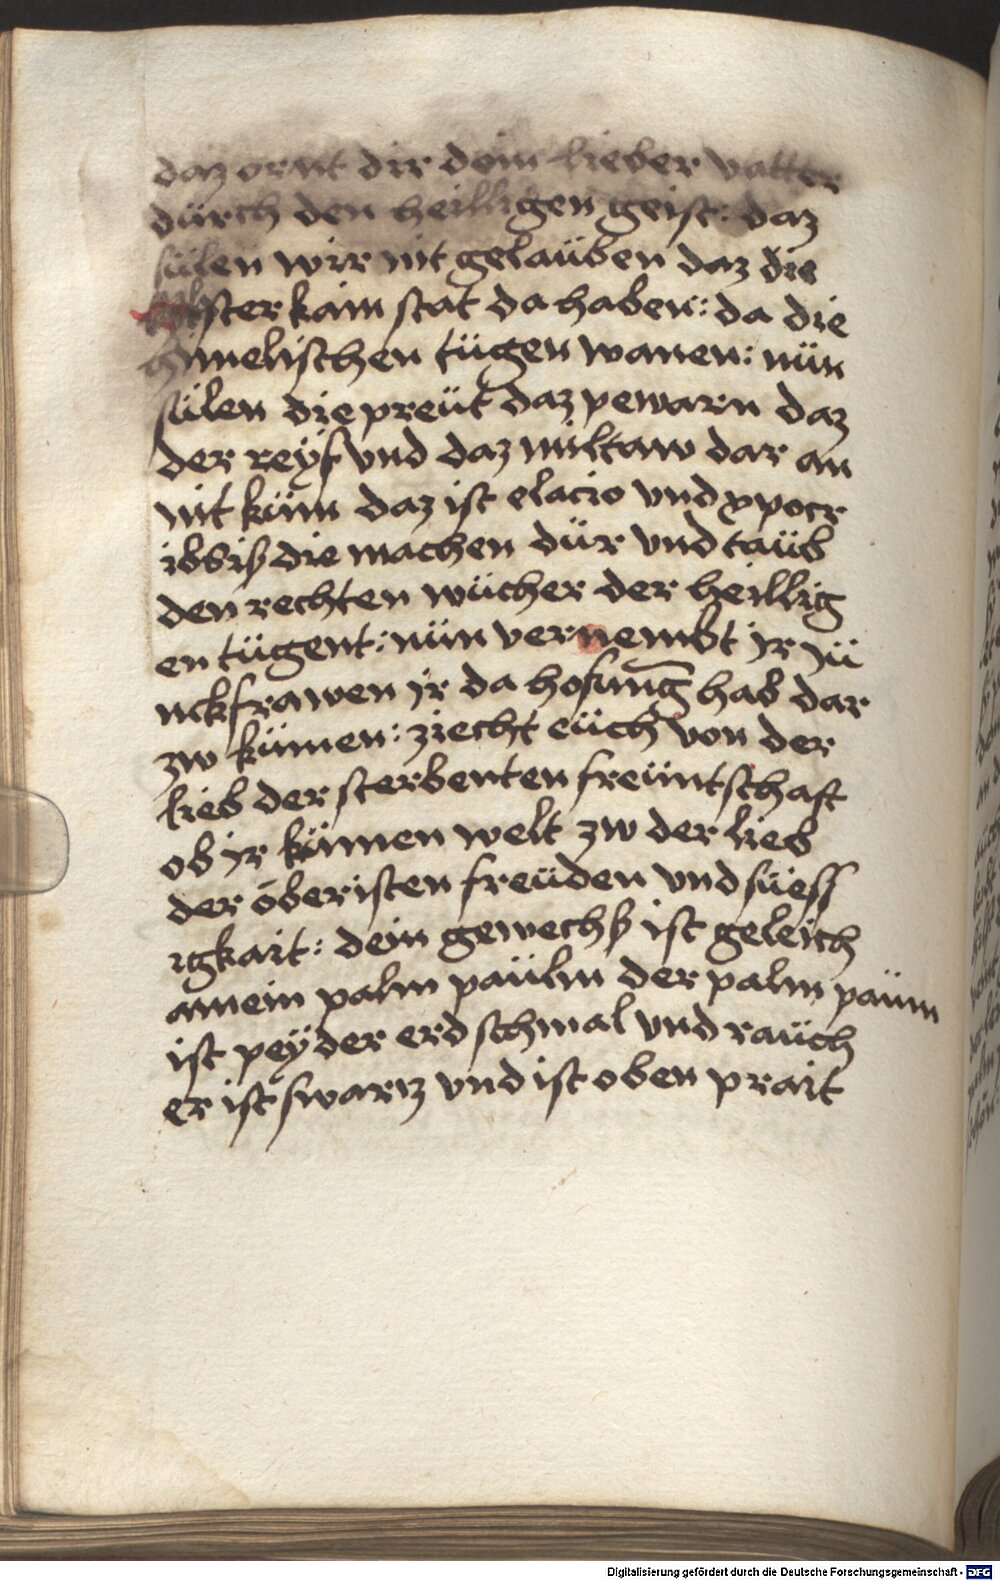 daz ornt dir dein lieber vatter
dürch den heilligen geist: daz
sülen wir nit gelaüben daz die
laster kain stat da haben: da die
himelischen tügen wanen: nün
sülen die preüt daz pewarn daz
der reyf vnd daz miltaw dar an
nit küm daz ist elacio vnd ypocr
isis die machen dür vnd taüb
den rechten wücher der heillig
en tügent: nün vernembt jr jü
nckfrawen jr da hofung̅ hab dar
zw kümen: ziecht eüch von der
lieb der sterbenten freüntschaft
ob jr kümen welt zw der lieb
der öberisten freüden vnd süess
igkait: dein gewechs ist geleich
amein palm paülm der palm paüm
ist pey der erd schmal vnd raüch
er ist swartz vnd ist oben prait
Digitalisierung gefördert durch die Deutsche Forschungsgemeinschaft - DFG